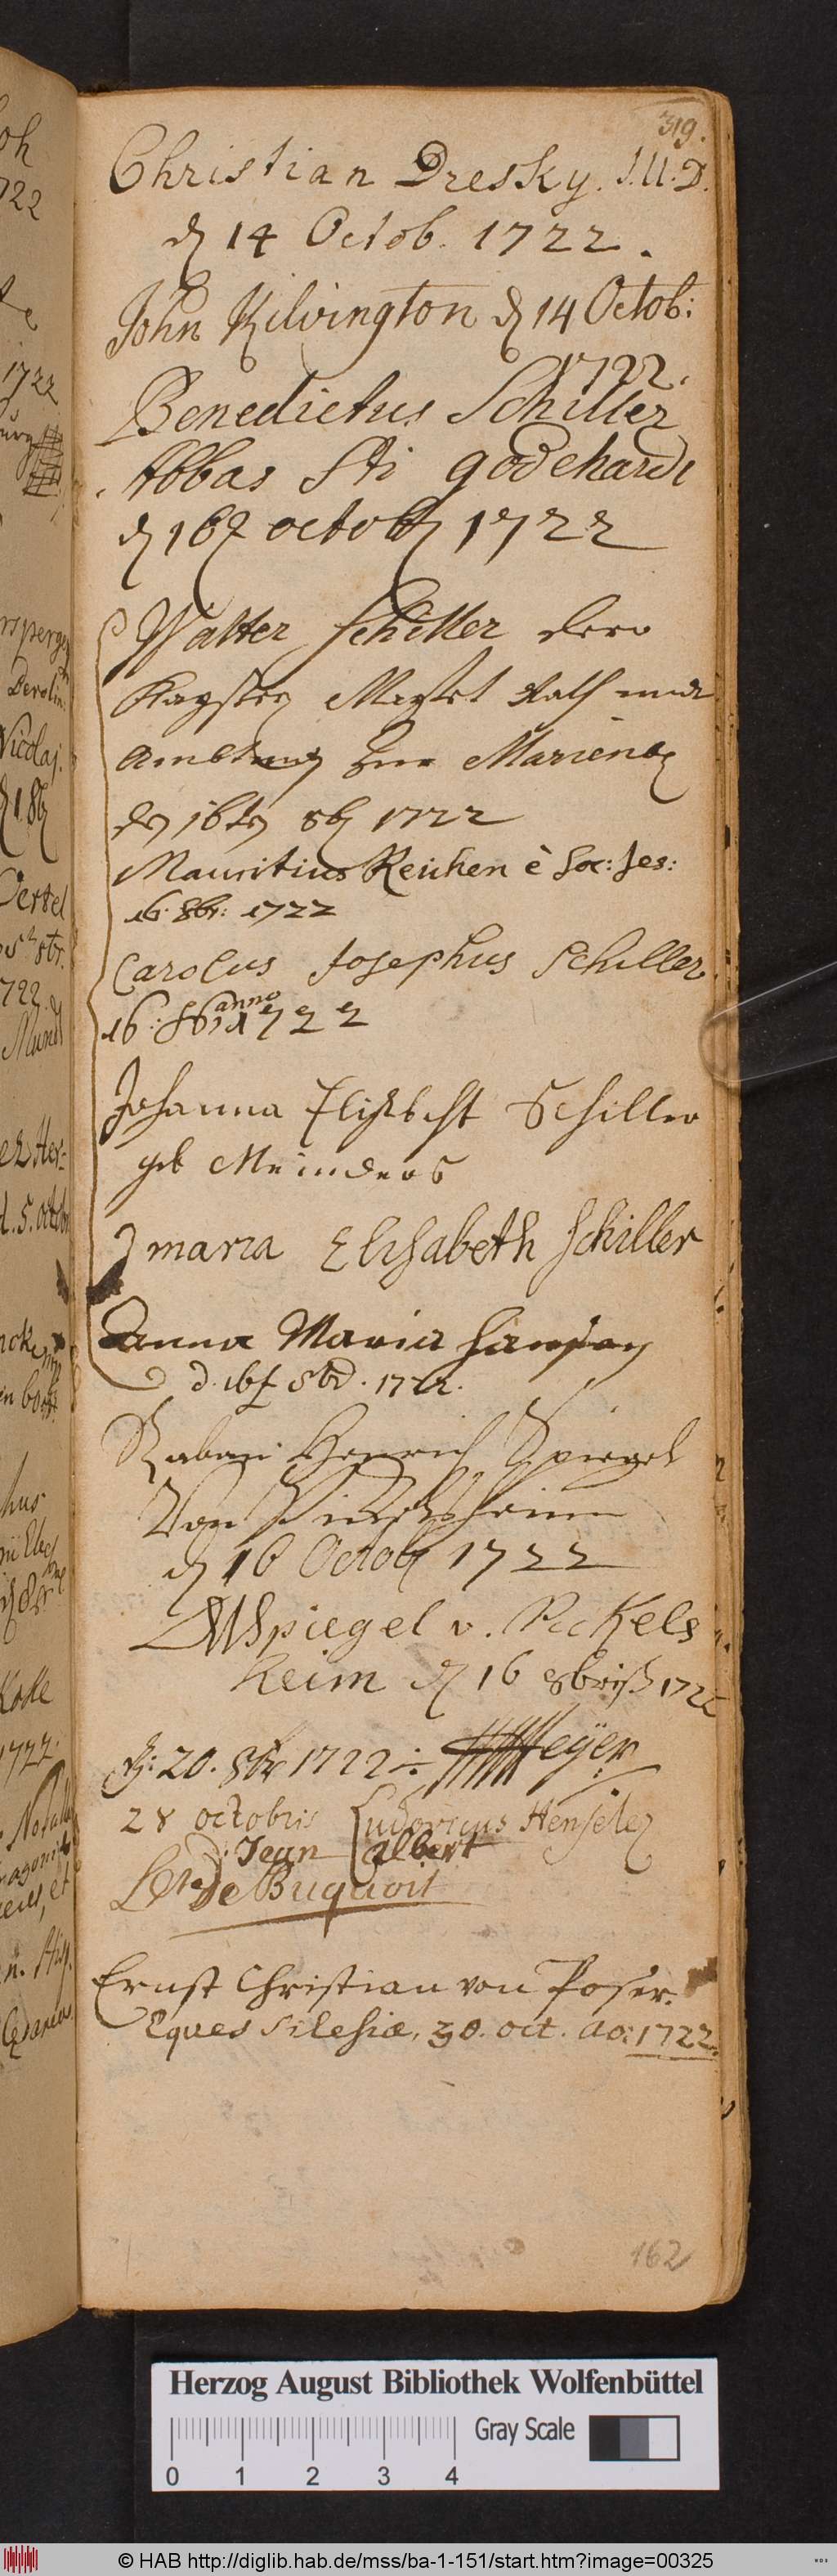 319.
Christian Dresky. J.U.D.
d 14 Octob. 1722.
John Kilvington d 14 Octob:
1722.
Benedictus Schiller
Abbas Sti godehardi
d 16 octob 1722
Walter Schiller
Kayserl Mayest Rath und
Marienb
den 16ten 8b 1722
Mauritius Reuhen è Soc: Jes:
16. 8br: 1722
Carolus Josephus Schiller
16: 8b anno 1722
Johanna Elisabeht Schiller
geb Meinders
maria Elisabeth Schiller
Anna Maria
d. 16 8br. 1722.
Raban Henrich Spiegel
Von Pickelsheim
d 16 Octob 1722
Spiegel v. Pickels
heim d 16 8bris 1722
d: 20. 8br 1722
28 octobris Ludovicus Henseler
Jean albert
de Buquoit
Ernst Christian von Poser.
Eques Silesiæ, 30. oct. ao: 1722.
162
Herzog August Bibliothek Wolfenbüttel
Gray Scale
0 1 2 3 4
© HAB http://diglib.hab.de/mss/ba-1-151/start.htm?image=00325